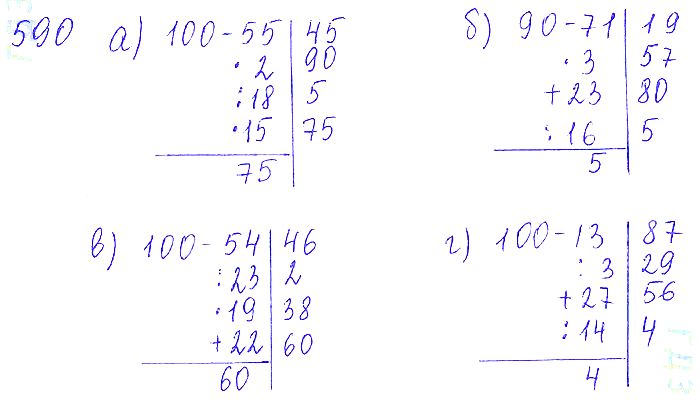 590 а) 100 - 55 | 45
· 2 | 90
: 18 | 5
· 15 | 75
75
б) 90 - 71 | 19
· 3 | 57
+ 23 | 80
: 16 | 5
5
в) 100 - 54 | 46
: 23 | 2
· 19 | 38
+ 22 | 60
60
г) 100 - 13 | 87
: 3 | 29
+ 27 | 56
: 14 | 4
4